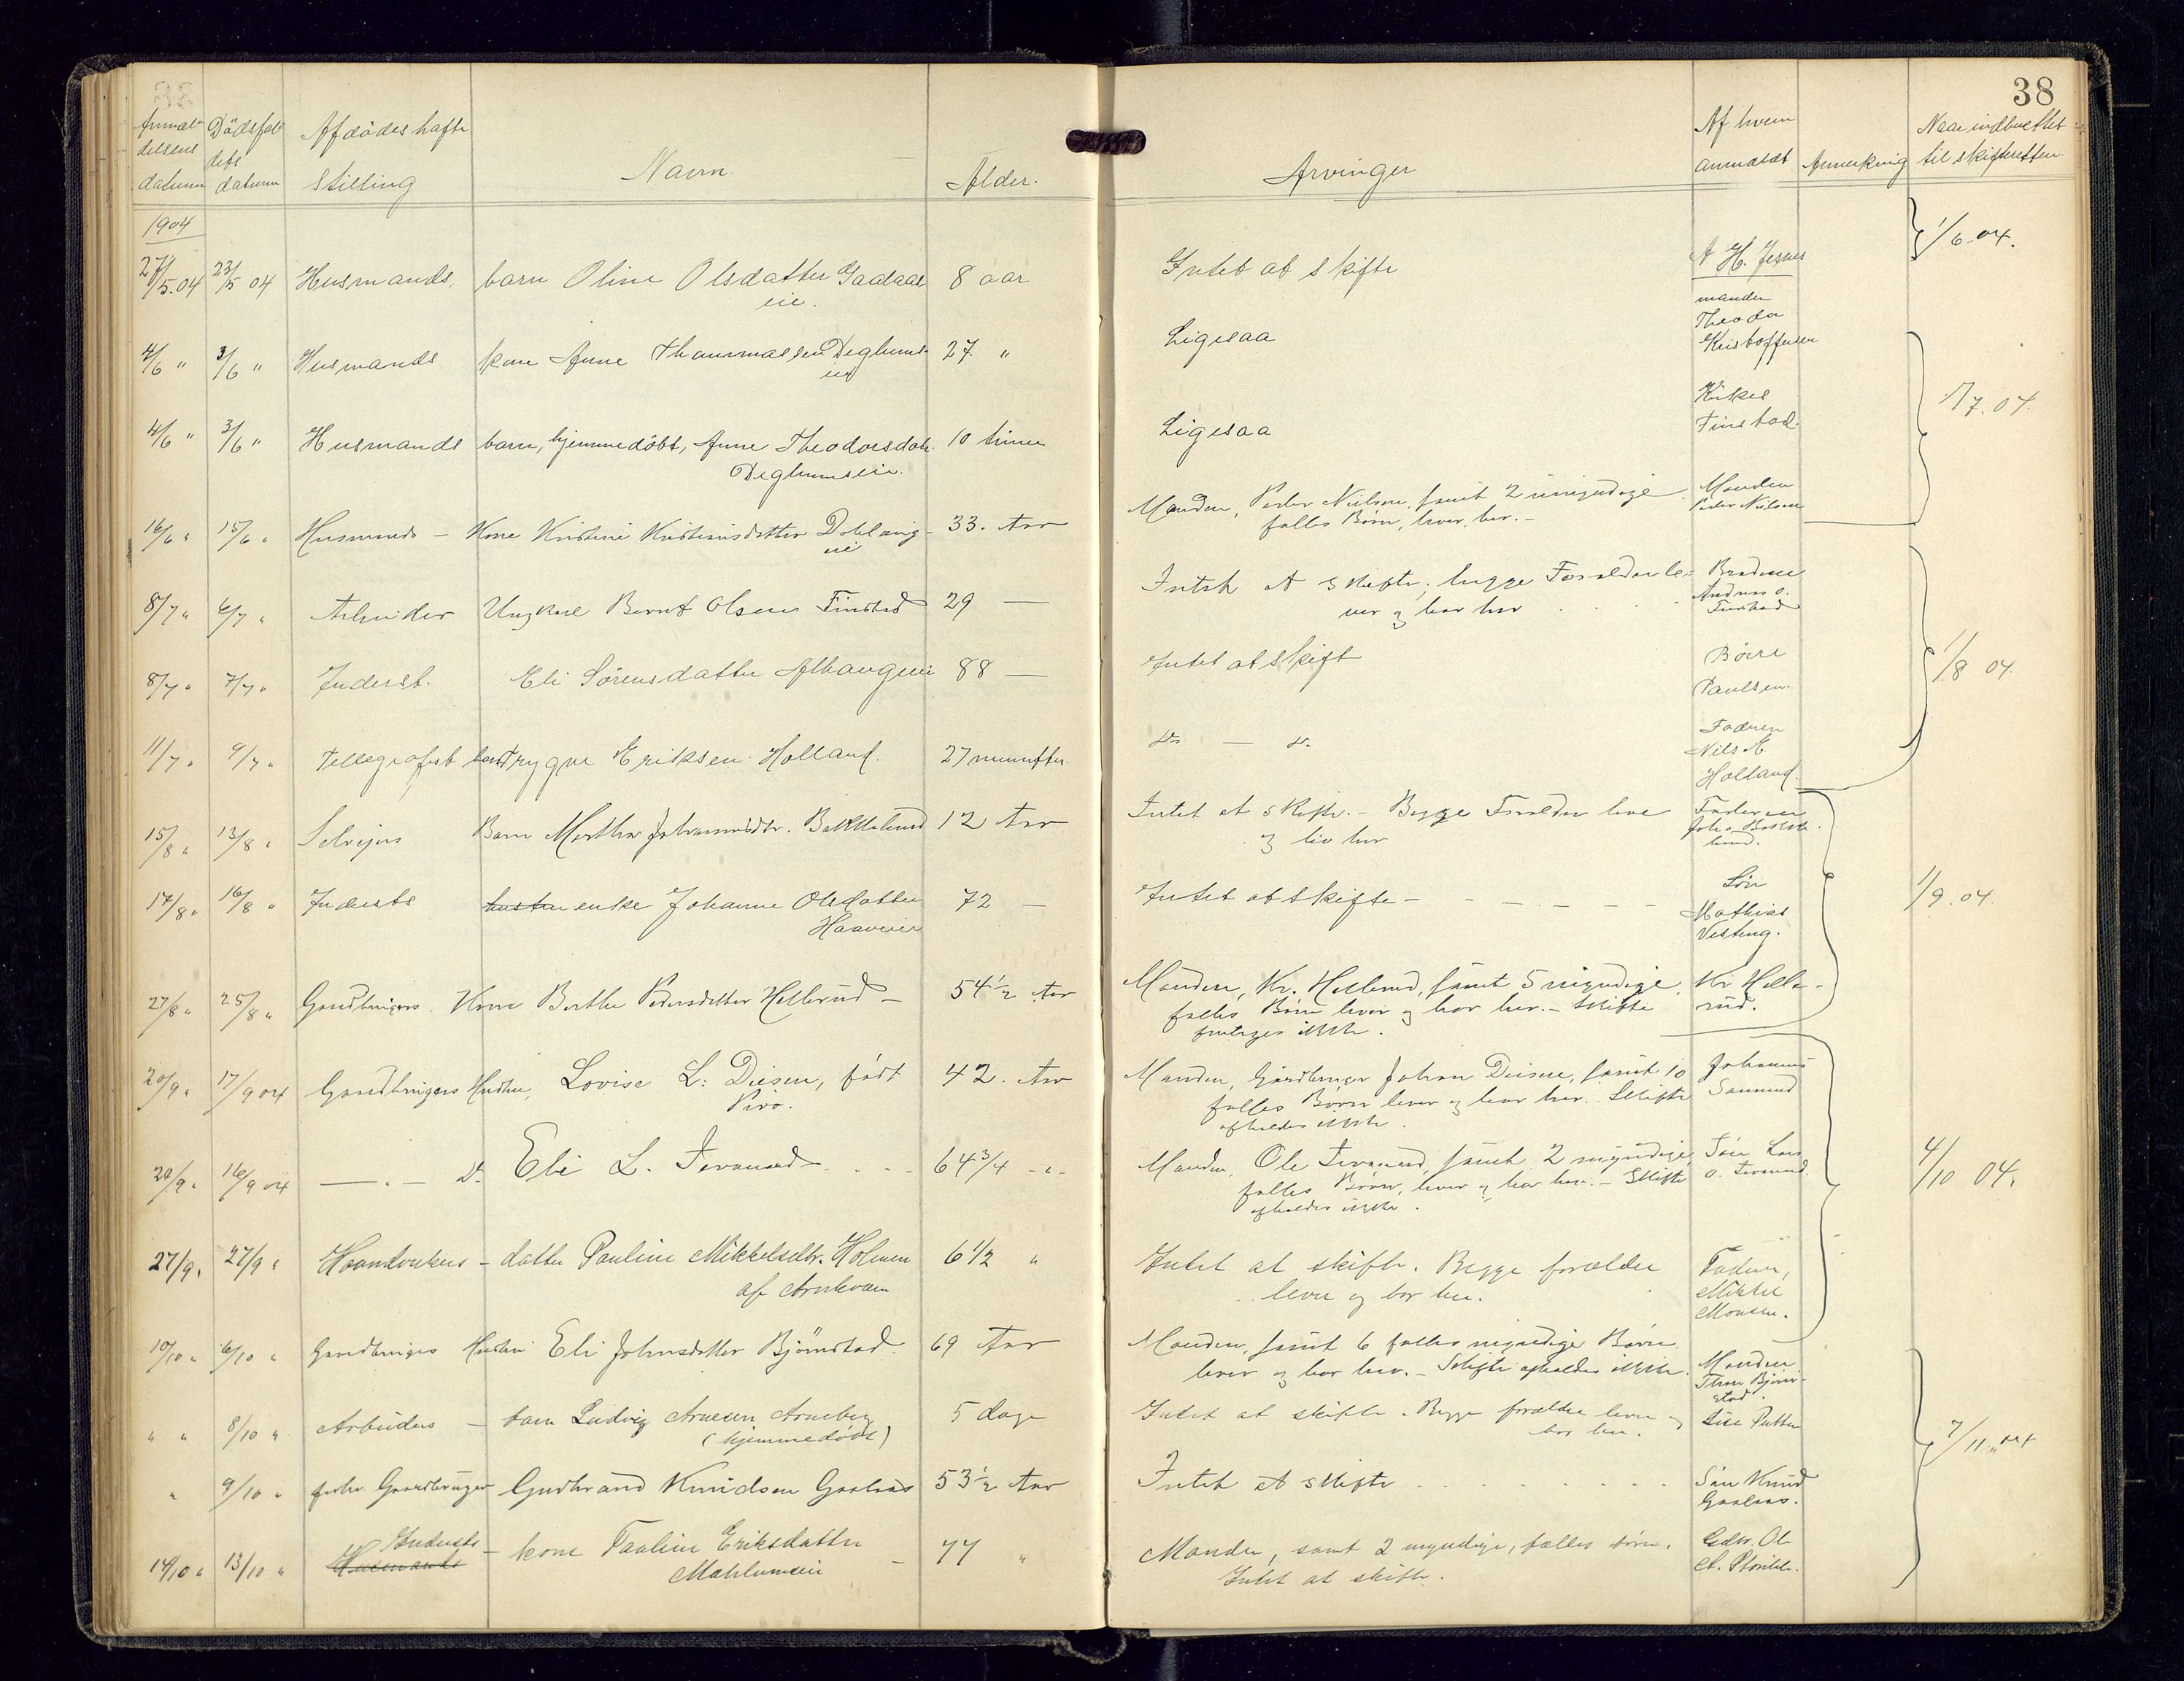 38
Anmeldelsens datum Dödsfaldets datum Afdödes hafte stilling Navn. Alder. Arvinger Af hvem anmeldt Anmerkning Naar indberettet til skifteretten.
1904
27/5.04 23/5 04 Husmands, barn Oline Olsdatter Gaalaas 8 aar Intet at skifte H. Jesnes 1/6 04.
eie.
4/6 " 3/6 " Husmands kone Anne Thommassen Deglums- 27 " Ligesaa manden Theodor Kristoffersen
eie
4/6 " 3/6 " Husmands barn, hjemmedöbt, Anne Theodorsdatr. 10 timer Ligesaa Finstad. 1/7.04.
Deglumseie.
16/6 " 15/6 " Husmands - Kone Kristine Kristiansdatter 33. Aar Manden, Peder Nielsen, samt 2 umyndige Manden Peder Nielsen
eie fælles Börn, lever her. -
8/7 " 6/7 " Arbeider Ungkarl Bernt Olsen Finstad 29 — Intet at skifte, begge Forældre le- Broderen Andreas O. Finstad
ver og bor her
8/7 " 7/7 " Inderst. Eli Sörensdatter 88 — Intet at skifte Paulsen. 1/8 04.
11/7 " 9/7 " Tellegrafist barn Trygve Eriksen Holland. 27 Do — do. Faderen Nils E. Holland.
15/8 " 13/8 " Selveiers Barn Marthe Johannesdtr. Bakkelund 12 Aar Intet at skifte. - Begge Forældre leve Faderen Joh. Bakkelund.
og bor her
17/8 " 16/8 " Inderste enke Johanne Olsdatter 72 — Intet at skifte - - - - - - Sön Mathias 1/9.04.
27/8 " 25/8 " Gaardbrugers Kone Berthe Pedersdatter Hellerud - 54 1/2 Aar Manden, Kr. Hellerud, samt 5 myndige Kr Helle-
fælles Börn lever og bor her. - Skifte rud.
foretages ikke.
20/9 " 17/9 04 Gaardbrugers Hustru, Lovise L. Diesen, födt 42. Aar Manden, Gaardbruger Johan Diesen, samt 10 Johannes
fælles Börn lever og bor her. Skifte
afholdes ikke.
20/9 " 16/9 04 — " — Do Eli L. 64 3/4 - " - Manden, Ole samt 2 myndige Sön Lars
fælles Börn, lever og bor her. - Skifte O. 4/10 04.
afholdes ikke.
27/9 " 27/9 " Haandverkers - datter Pauline Mikkelsdtr. Holmen 6 1/2 " Intet at skifte. Begge forældre Faderen,
af Arnkvern lever og bor her. Mikkel Monsen.
10/10 " 6/10 " Gaardbrugers Hustru Eli Johnsdatter Björnstad. 69 Aar Manden, samt 6 fælles myndige Börn
lever og bor her. - Skifte afholdes ikke. Manden Thor Björnstad.
" " 8/10 " Arbeiders - barn Ludvig Arnesen Arneberg 5 dage Intet at skifte. Begge forældre lever og
(hjemmedöbt) bor her. 7/11.04
" 9/10 " forhv. Gaardbruger Gudbrand Knudsen Gaalaas 53 1/2 Aar Intet at skifte Sön Knud Gaalaas.
14/10 " 13/10 " Inderste - kone Pauline Eriksdatter 77 " Manden, samt 2 myndige, fælles börn. Gdbr. Ole
Husmands Mæhlumseie Intet at skifte.